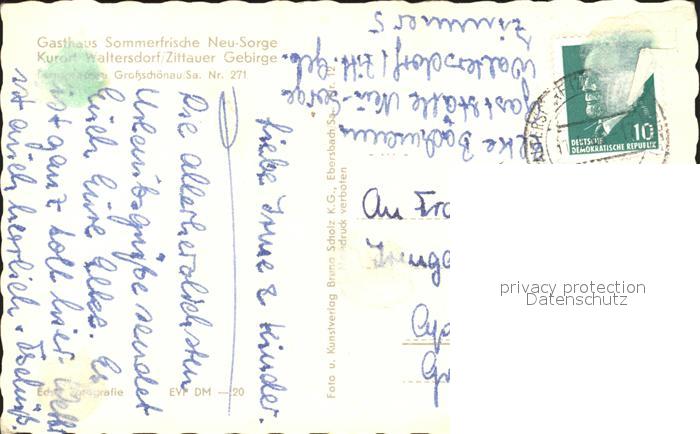 Gasthaus Sommerfrische Neu-Sorge
Kurort Waltersdorf/Zittauer Gebirge
Großschönau/Sa. Nr. 271
Liebe Irma & Kinder.
Die allerherzlichsten
Urlaubsgrüße sendet
Euch Eure Elke. Es
ist ganz toll hier. Wetter
ist auch herrlich. Tschüß.
Echte Fotografie
EVP DM —.20
Foto u. Kunstverlag Bruno Scholz K.G., Ebersbach Sa.
Nachdruck verboten
Elke
Gaststätte Neu-Sorge
Waltersdorf / Zitt. Geb.
Zimmer 5
DEUTSCHE
DEMOKRATISCHE REPUBLIK
10
An
privacy protection
Datenschutz